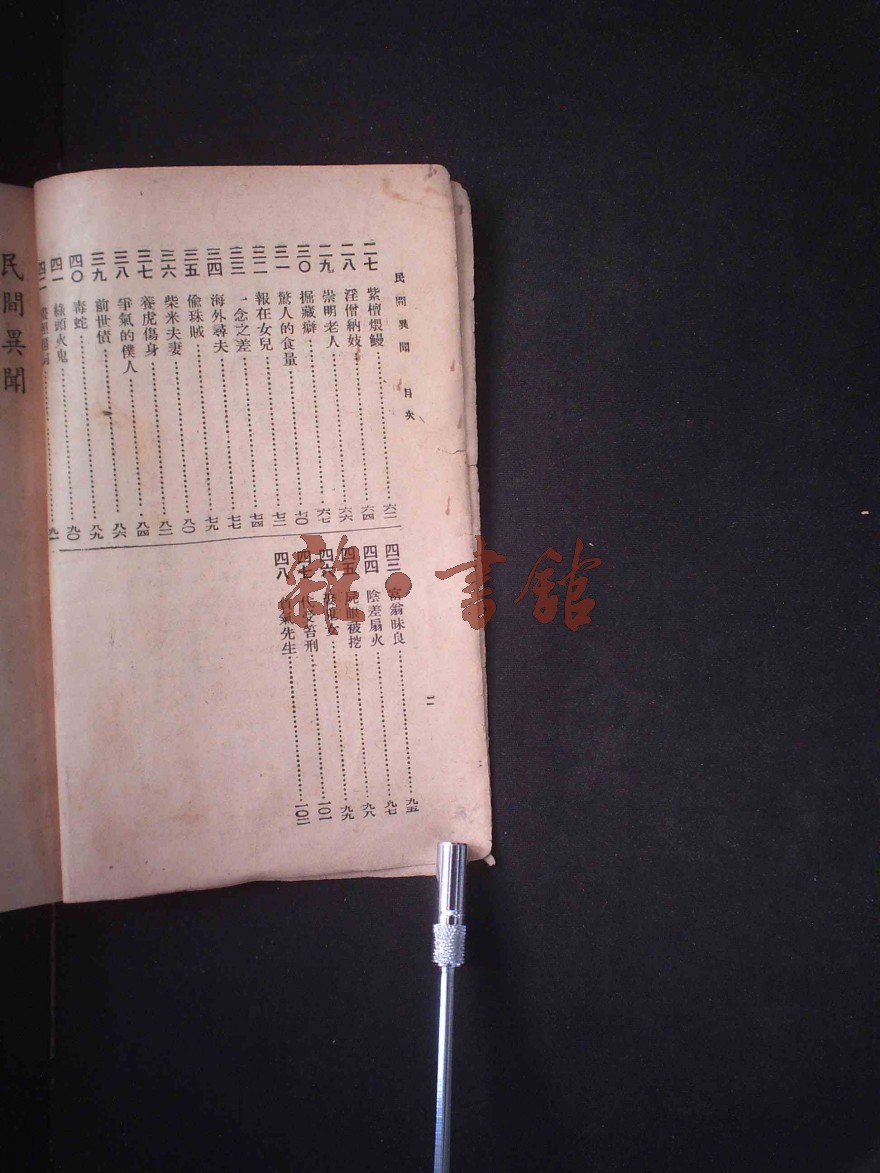 民間異聞 目次
二七 紫檀煨鰻 六二
二八 淫僧納妓 六四
二九 崇明老人 六六
三〇 掘藏癖 六七
三一 驚人的食量 七〇
三二 報在女兒 七二
三三 一念之差 七四
三四 海外尋夫 七七
三五 偸珠賊 七九
三六 柴米夫妻 八〇
三七 養虎傷身 八二
三八 爭氣的僕人 八四
三九 前世債 八六
四〇 毒蛇 八九
四一 綠頭火鬼 九〇
四二 九一
四三 富翁昧良 九五
四四 陰差扇火 九七
四五 屍眼被挖 九八
四六 女 九九
四七 代受笞刑 一〇一
四八 負氣先生 一〇二
二
民間異聞
雜·書館